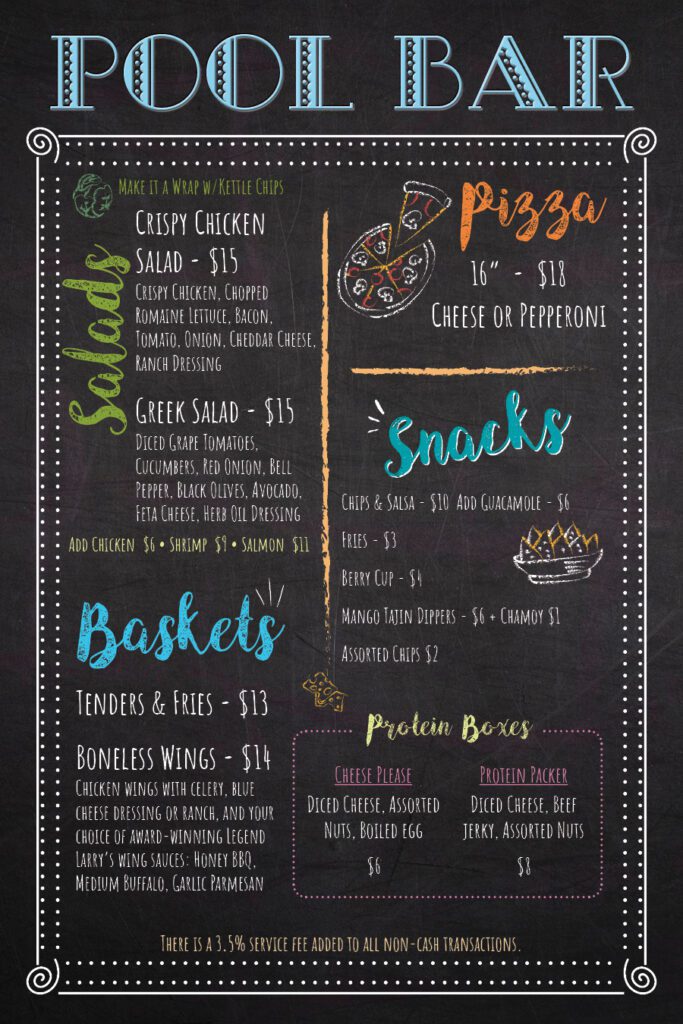 POOL BAR
Make it a Wrap w/Kettle Chips
Salads
Crispy Chicken
Salad - $15
Crispy Chicken, Chopped
Romaine Lettuce, Bacon,
Tomato, Onion, Cheddar Cheese,
Ranch Dressing
Greek Salad - $15
Diced Grape Tomatoes,
Cucumbers, Red Onion, Bell
Pepper, Black Olives, Avocado,
Feta Cheese, Herb Oil Dressing
Add Chicken $6 • Shrimp $9 • Salmon $11
Baskets
Tenders & Fries - $13
Boneless Wings - $14
Chicken wings with celery, blue
cheese dressing or ranch, and your
choice of award-winning Legend
Larry's wing sauces: Honey BBQ,
Medium Buffalo, Garlic Parmesan
Pizza
16" - $18
Cheese or Pepperoni
Snacks
Chips & Salsa - $10 Add Guacamole - $6
Fries - $3
Berry Cup - $4
Mango Tajin Dippers - $6 + Chamoy $1
Assorted Chips $2
Protein Boxes
Cheese Please
Diced Cheese, Assorted
Nuts, Boiled egg
$6
Protein Packer
Diced Cheese, Beef
Jerky, Assorted Nuts
$8
There is a 3.5% service fee added to all non-cash transactions.